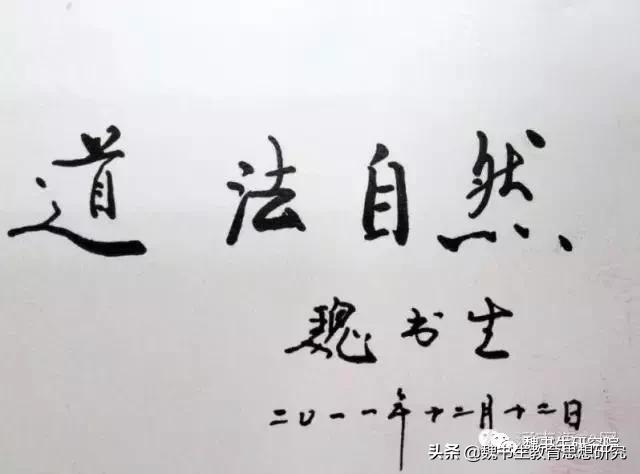 道法自然
魏书生
二〇一一年十二月十二日
魏书生研究院
头条 @魏书生教育思想研究